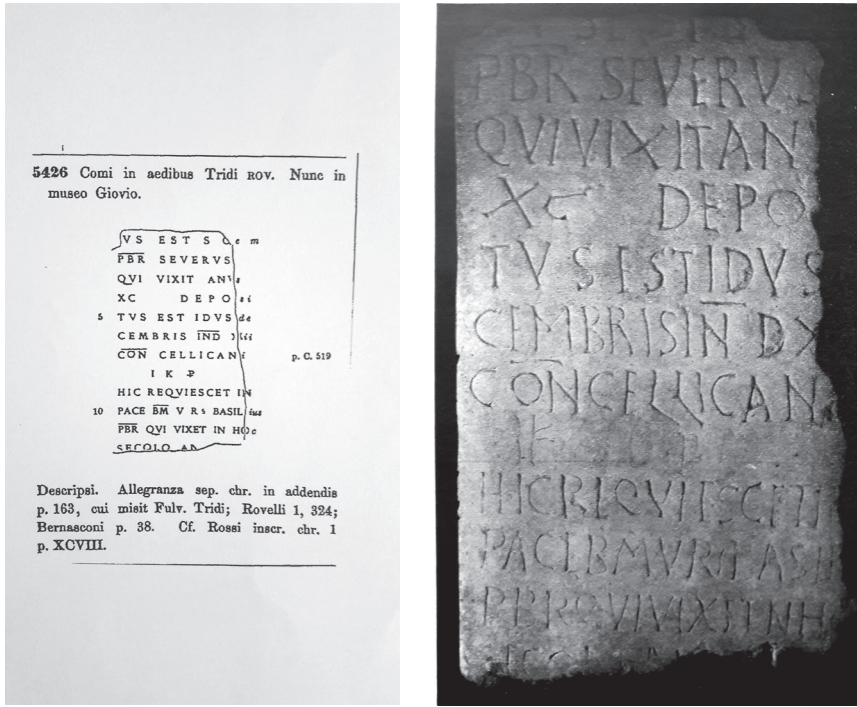 5426 Comi in aedibus Tridi ROV. Nunc in
museo Giovio.
VS EST S C e m
PBR SEVERVS
QVI VIXIT AN s
XC DEPO si
5 TVS EST IDVS de
CEMBRIS IND iii
CON CELLICAN i p. C. 519
I K P
HIC REQVIESCET IN
10 PACE BM V R BASIL ius
PBR QVI VIXET IN HO c
SECOLO AN
Descripsi. Allegranza sep. chr. in addendis
p. 163, cui misit Fulv. Tridi; Rovelli 1, 324;
Bernasconi p. 38. Cf. Rossi inscr. chr. 1
p. XCVIII.
PBR SEVERVS
QVI VIXIT AN
XC DEPO
TVS EST IDVS
CEMBRIS IN D X
CON CELLICAN
HIC REQVIESCET I
PACE BM VR ASI
PBR QVI VIXIT IN H